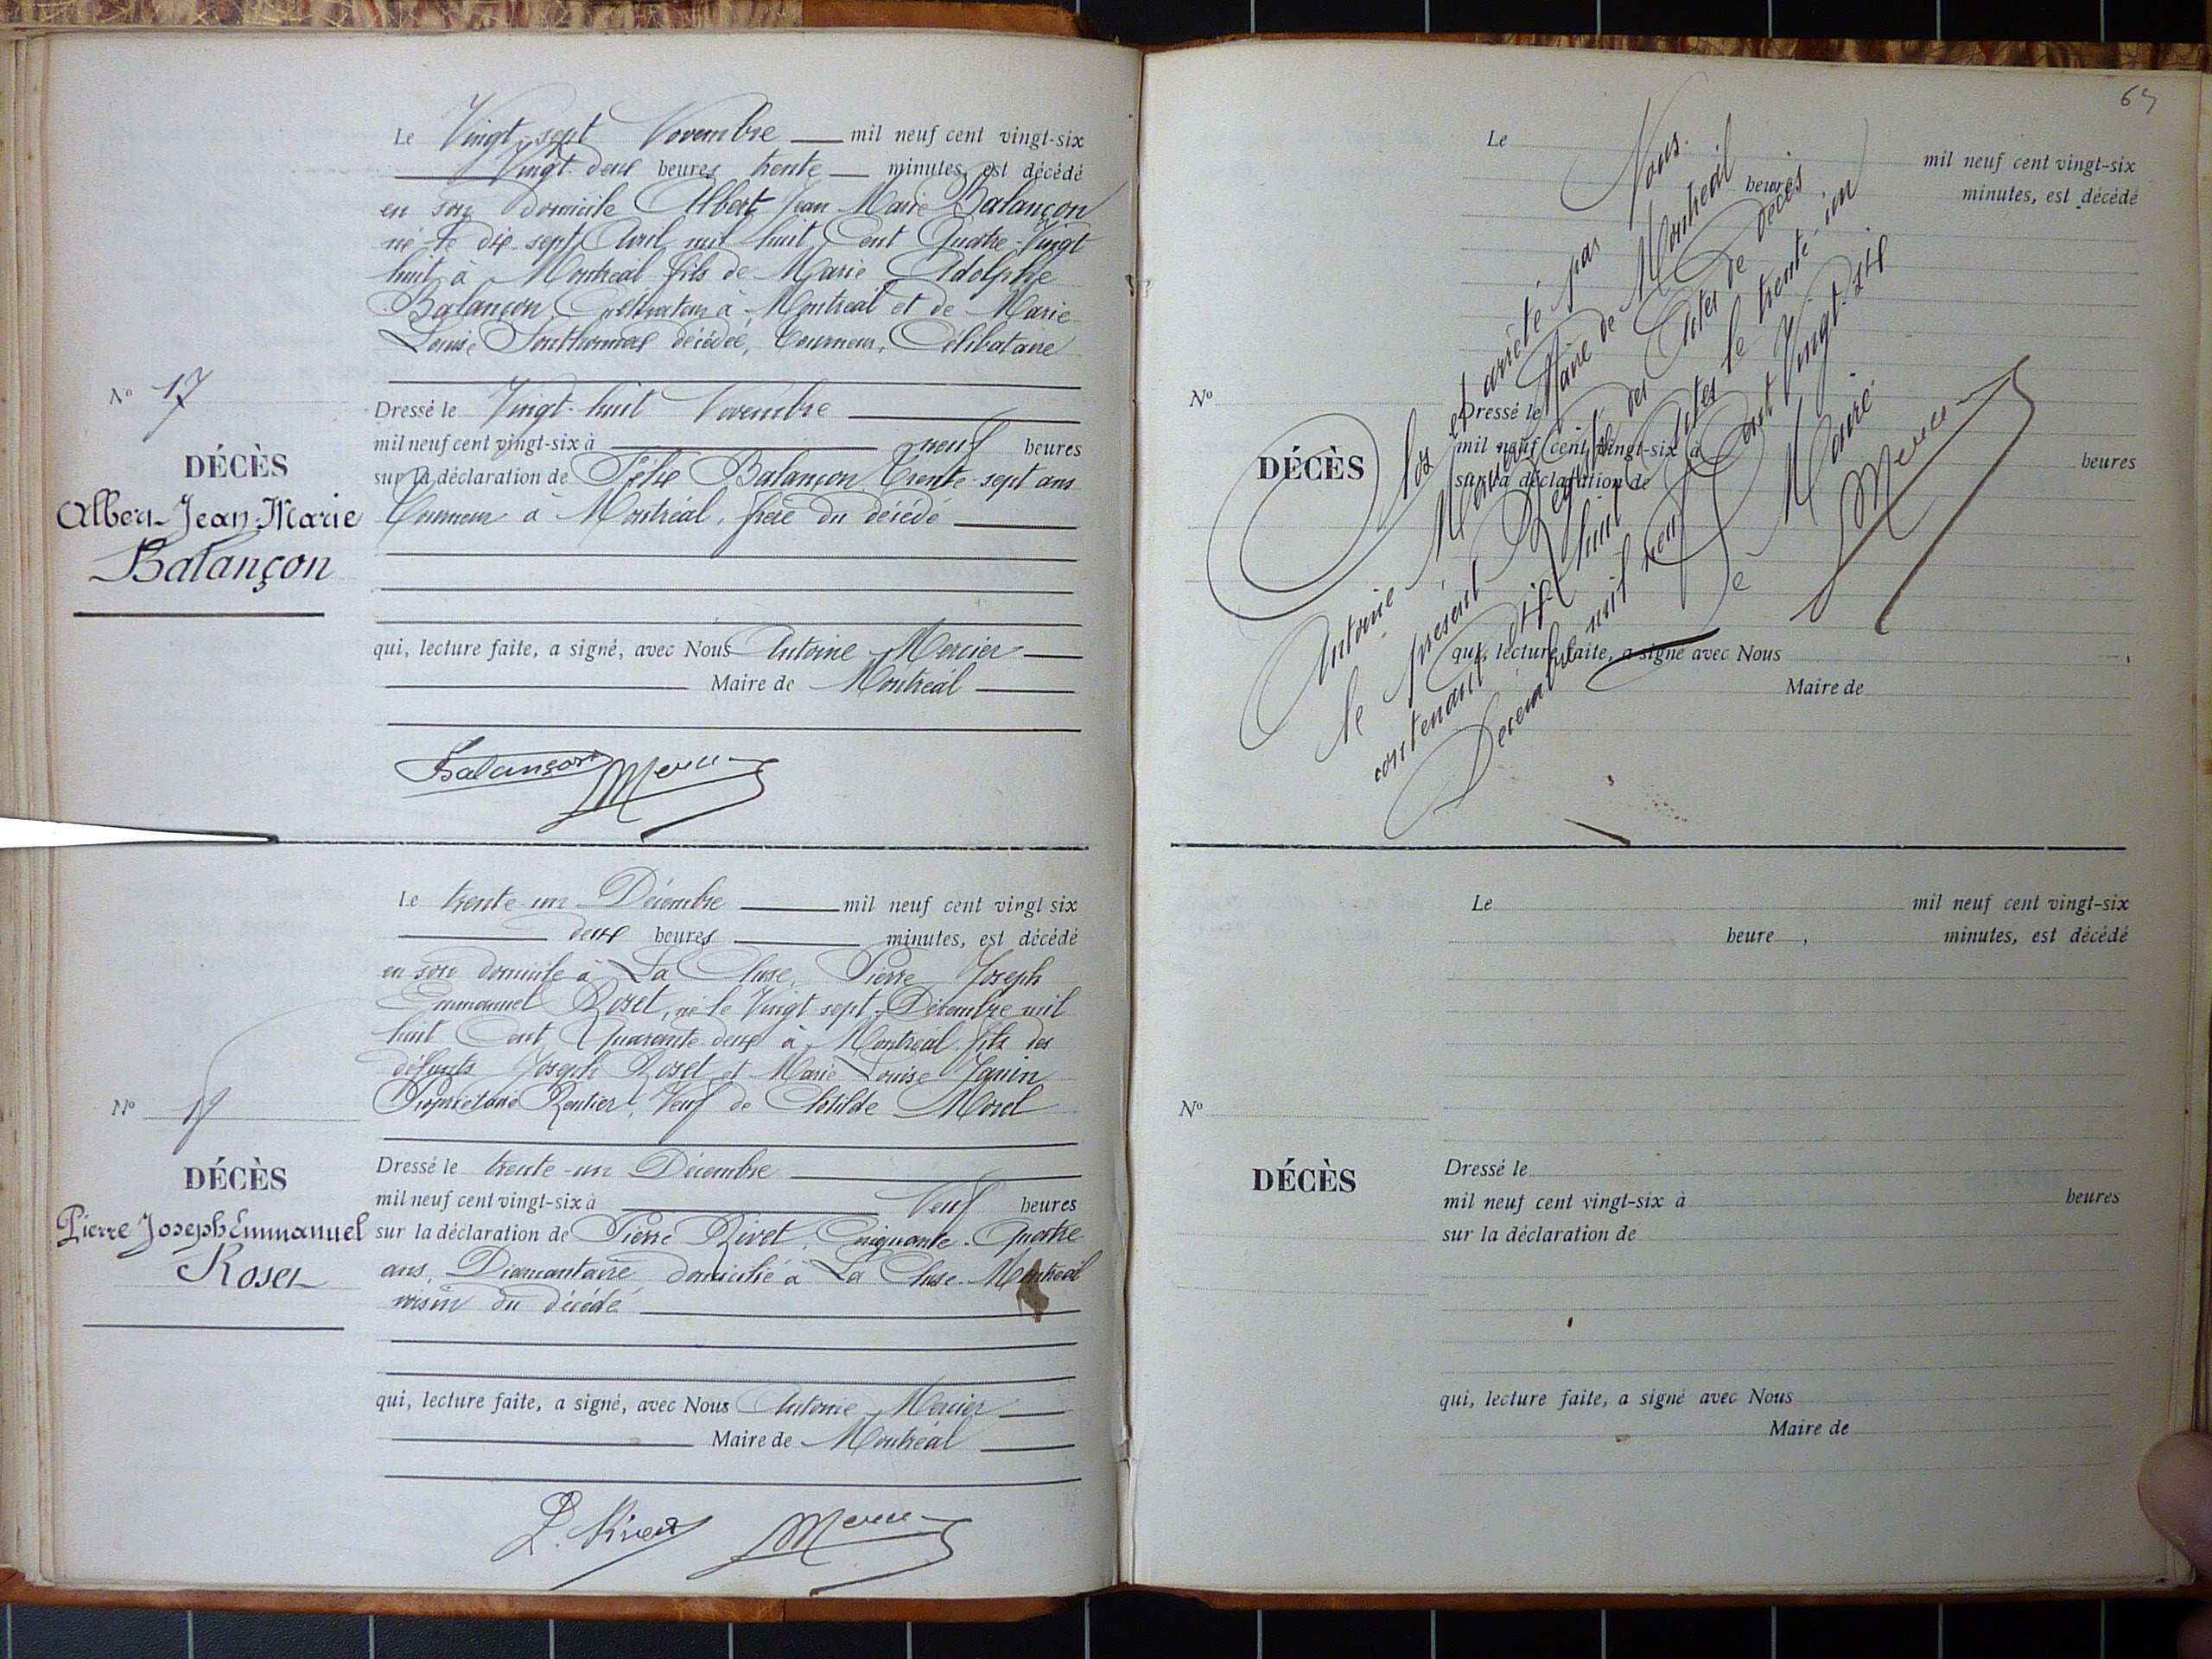 Le Vingt-sept Novembre mil neuf cent vingt-six
Vingt deux heures trente minutes, est décédé
en son domicile Albert Jean Marie Balançon
né le dix sept Avril mil huit Cent Quatre-Vingt
huit à Montréal fils de Marie Adolphe
Balançon, Cultivateur à Montréal et de Marie
Louise décédée, Tourneur, Célibataire
No 17
Dressé le Vingt-huit Novembre
mil neuf cent vingt-six à neuf heures
DÉCÈS
sur la déclaration de Félix Balançon Trente-sept ans
Albert-Jean-Marie
Tourneur à Montréal, frère du décédé
Balançon
qui, lecture faite, a signé, avec Nous Antoine Mercier
Maire de Montréal
Balançon Mercier
Le trente-un Décembre mil neuf cent vingt six
deux heures minutes, est décédé
en son domicile à La Cluse, Pierre Joseph
Emmanuel Roset, né le Vingt sept Décembre mil
huit Cent Quarante-deux à Montréal fils des
défunts Joseph Roset et Marie Louise Janin
Propriétaire Rentier, Veuf de Clotilde Morel
No 18
Dressé le trente-un Décembre
DÉCÈS
mil neuf cent vingt-six à Neuf heures
Pierre Joseph Emmanuel
sur la déclaration de Pierre Rivet, Cinquante-Quatre
Roset
ans, Diamantaire domicilié à La Cluse-Montréal
voisin du décédé
qui, lecture faite, a signé, avec Nous Antoine Mercier
Maire de Montréal
P. Rivet Mercier
65
Le mil neuf cent vingt-six
heures minutes, est décédé
No
Dressé le
mil neuf cent vingt-six à heures
DÉCÈS
sur la déclaration de
qui, lecture faite, a signé avec Nous
Maire de
Clos et arrêté par Nous.
Antoine Mercier Maire de Montréal
le présent Registre des Actes de Décès
contenant dix huit Actes le trente-un
Décembre mil neuf Cent Vingt-six
Le Maire
Mercier
Le mil neuf cent vingt-six
heure , minutes, est décédé
No
DÉCÈS
Dressé le
mil neuf cent vingt-six à heures
sur la déclaration de
qui, lecture faite, a signé avec Nous
Maire de